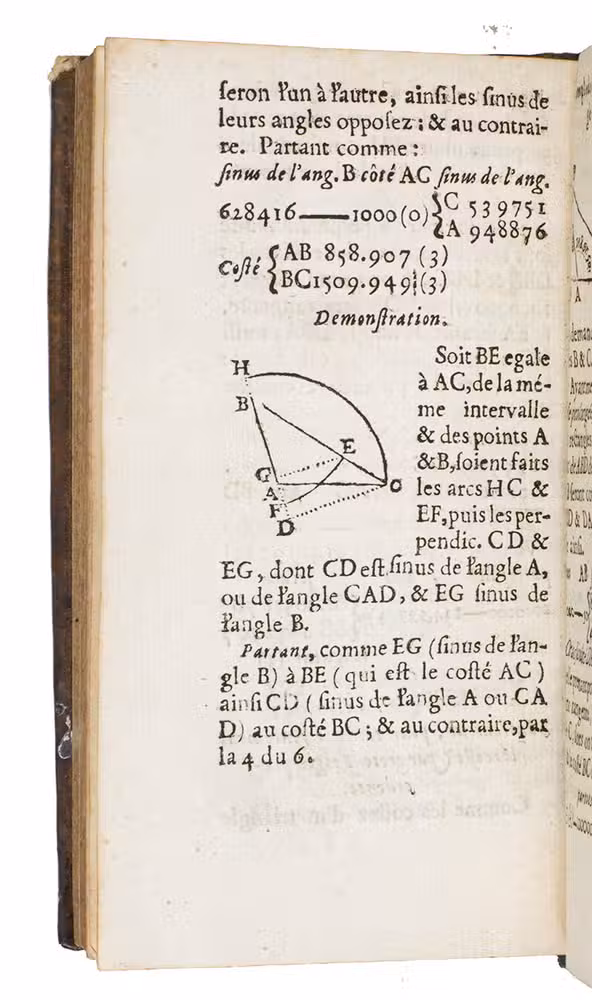 ſeron l'un à l'autre, ainſi les ſinus de
leurs angles oppoſez : & au contrai-
re. Partant comme :
ſinus de l'ang. B côté AC ſinus de l'ang.
628416——1000(0){C 539751
{A 948876
Coſté {AB 858.907 (3)
{BC1509.949(3)
Demonſtration.
H
B
E
G
A
C
F
D
Soit BE egale
à AC, de la mé-
me intervalle
& des points A
& B, ſoient faits
les arcs HC &
EF, puis les per-
pendic. CD &
EG, dont CD eſt ſinus de l'angle A,
ou de l'angle CAD, & EG ſinus de
l'angle B.
Partant, comme EG (ſinus de l'an-
gle B) à BE (qui eſt le coſté AC)
ainſi CD (ſinus de l'angle A ou CA
D) au coſté BC ; & au contraire, par
la 4 du 6.